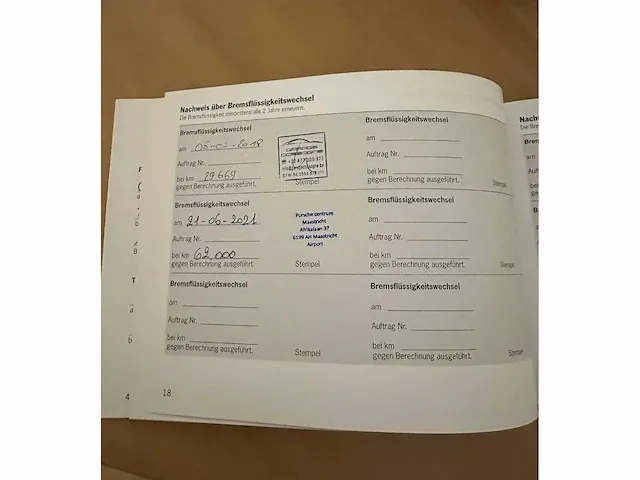 Nachweis über Bremsflüssigkeitswechsel
Die Bremsflüssigkeit mindestens alle 2 Jahre erneuern.
Bremsflüssigkeitswechsel
am 2018
Auftrag Nr.
bei km 29.669
gegen Berechnung ausgeführt.
Stempel
Bremsflüssigkeitswechsel
am
Auftrag Nr.
bei km
gegen Berechnung ausgeführt.
Stempel
Bremsflüssigkeitswechsel
am 21-06-2021
Auftrag Nr.
bei km 62.000
gegen Berechnung ausgeführt.
Porsche centrum
Maastricht
Afrikalaan 37
6199 AH Maastricht
Airport
Stempel
Bremsflüssigkeitswechsel
am
Auftrag Nr.
bei km
gegen Berechnung ausgeführt.
Stempel
Bremsflüssigkeitswechsel
am
Auftrag Nr.
bei km
gegen Berechnung ausgeführt.
Stempel
Bremsflüssigkeitswechsel
am
Auftrag Nr.
bei km
gegen Berechnung ausgeführt.
Stempel
18
4